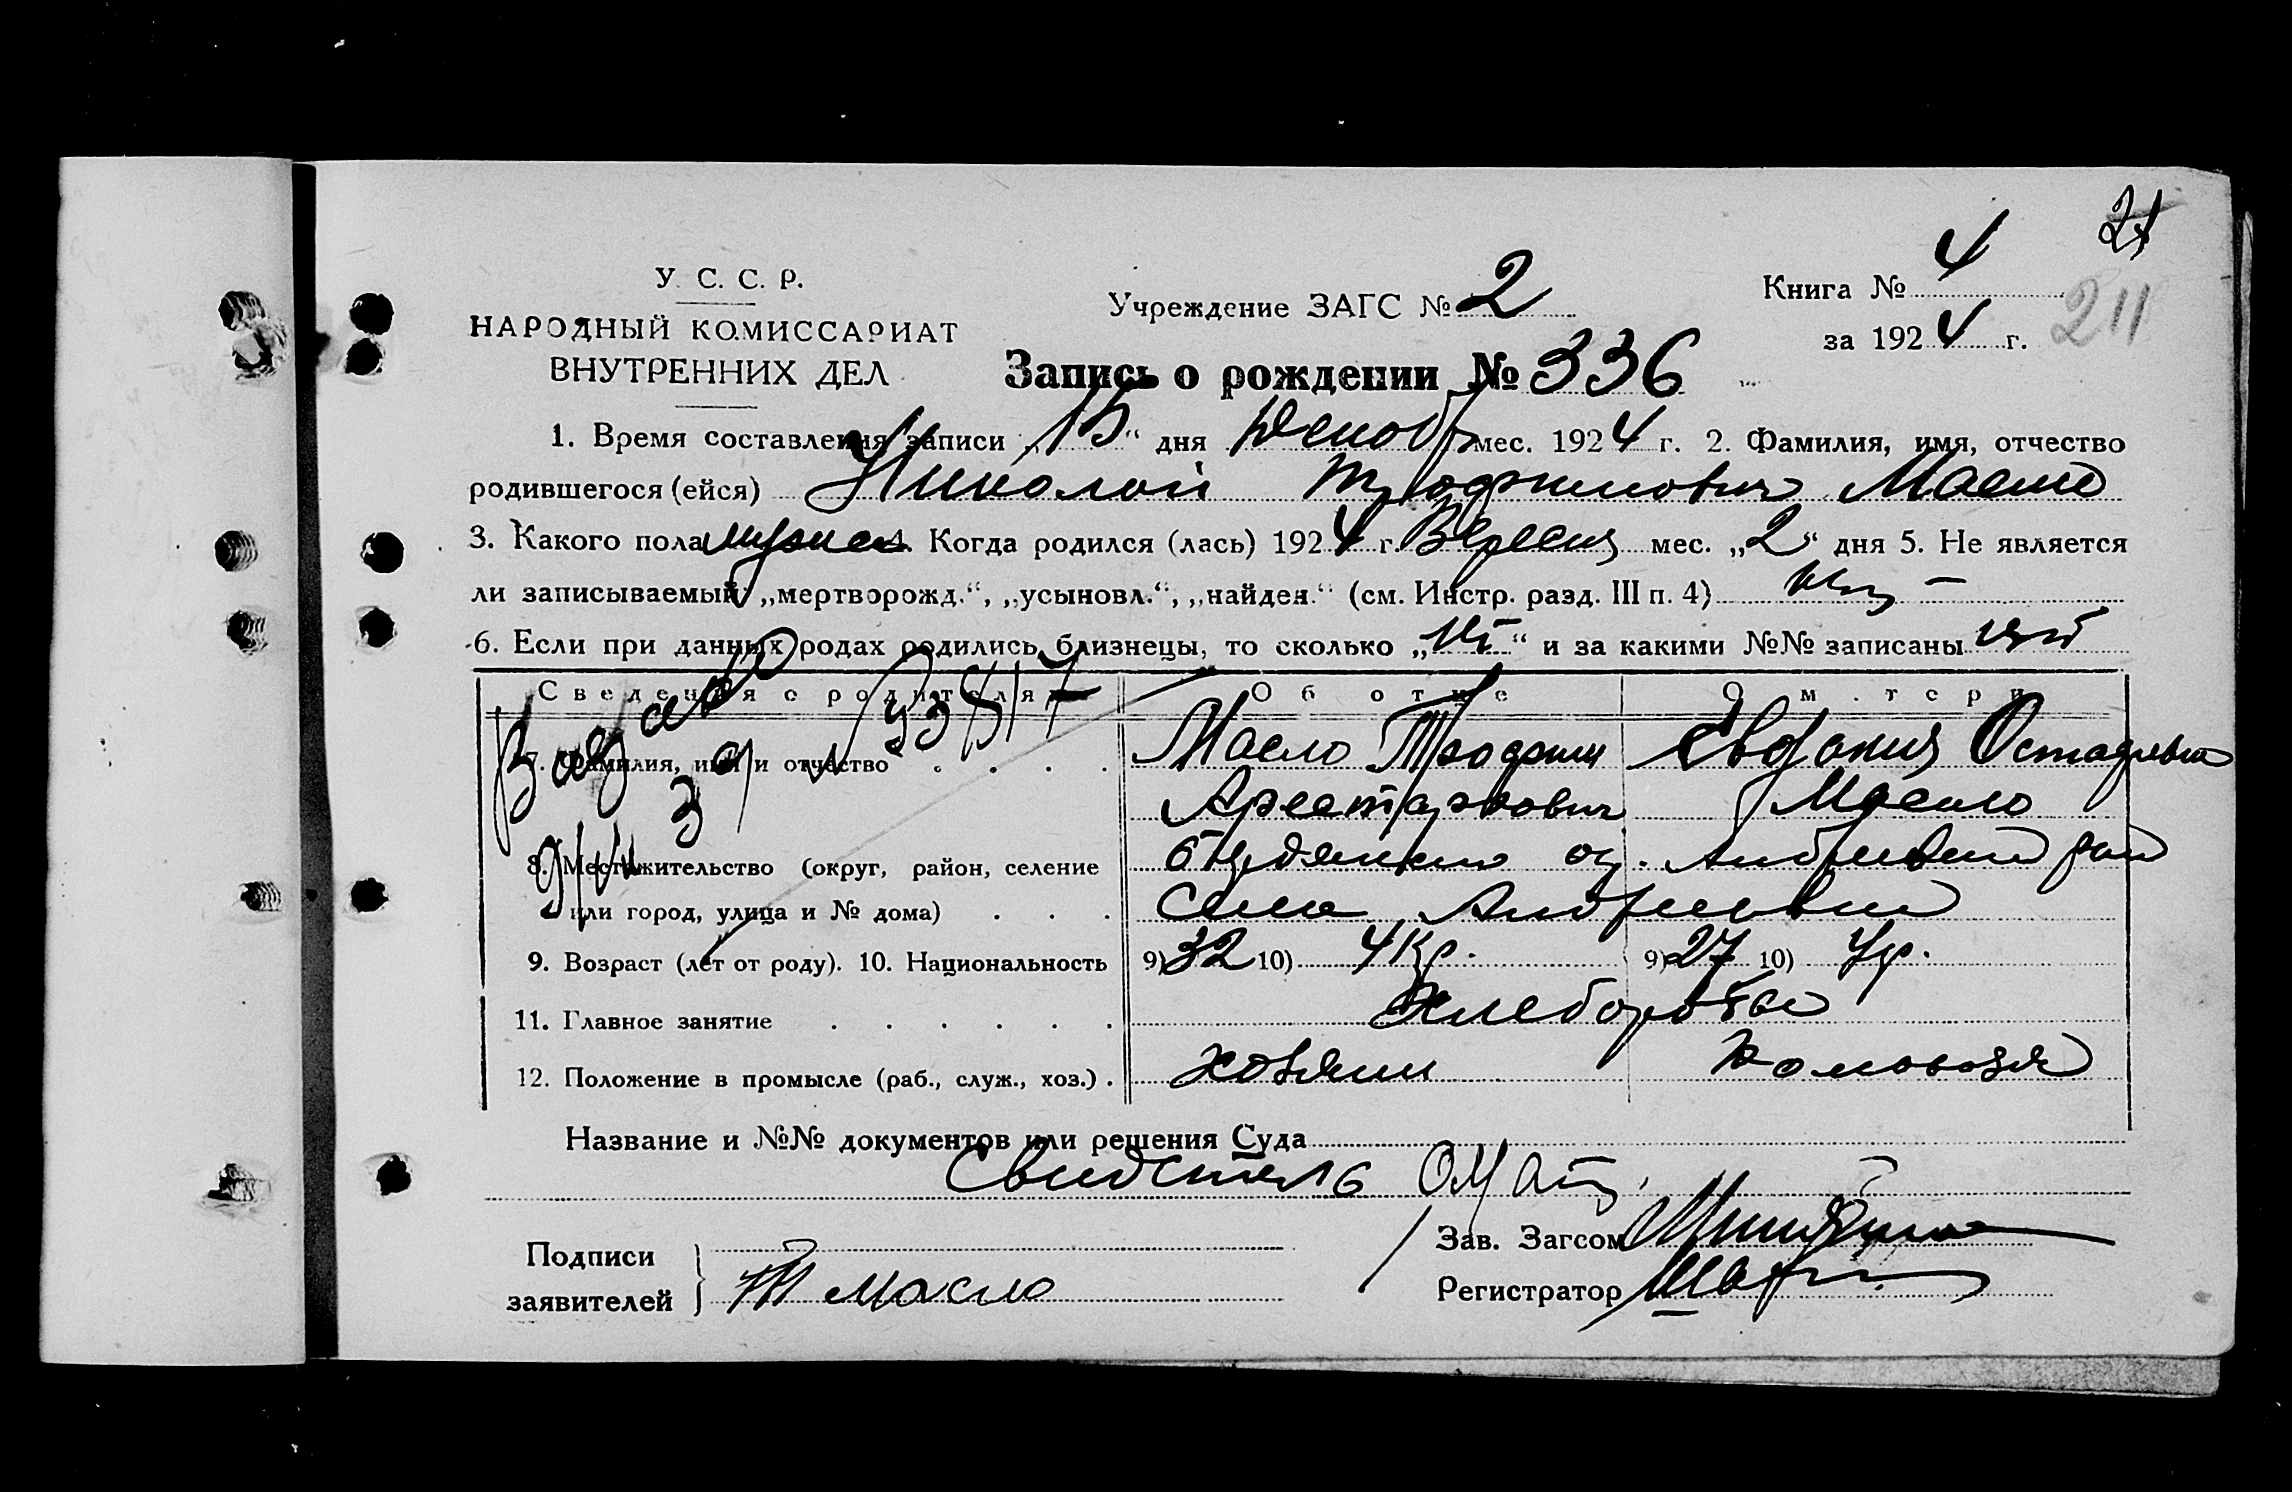 21
У. С. С. Р.
НАРОДНЫЙ КОМИССАРИАТ
ВНУТРЕННИХ ДЕЛ
Учреждение ЗАГС № 2
Книга № 4
за 1924 г.
211
Запись о рождении № 336
1. Время составления записи „15“ дня Декобр мес. 1924 г. 2. Фамилия, имя, отчество
родившегося (ейся) Николай Трофимович Масло
3. Какого пола мужск 4. Когда родился (лась) 1924 г. Вересня мес. „2“ дня 5. Не является
ли записываемый: „мертворожд.“, „усыновл.“, „найден.“ (см. Инстр. разд. III п. 4)
6. Если при данных родах родились близнецы, то сколько „ “ и за какими №№ записаны
Сведения о родителях Об отце О матери
7. Фамилия, имя и отчество Масло Трофим Евдокия Остаповна
Аристархович Масло
8. Местожительство (округ, район, селение Бердянского Андреевский
или город, улица и № дома) Село Андреевка
9. Возраст (лет от роду). 10. Национальность 9) 32 10) Укр. 9) 27 10) Ур.
11. Главное занятие Хлеборобство
12. Положение в промысле (раб., служ., хоз.) хозяин Домохозя
Название и №№ документов или решения Суда
Подписи
заявителей
Т Масло
Зав. Загсом
Регистратор